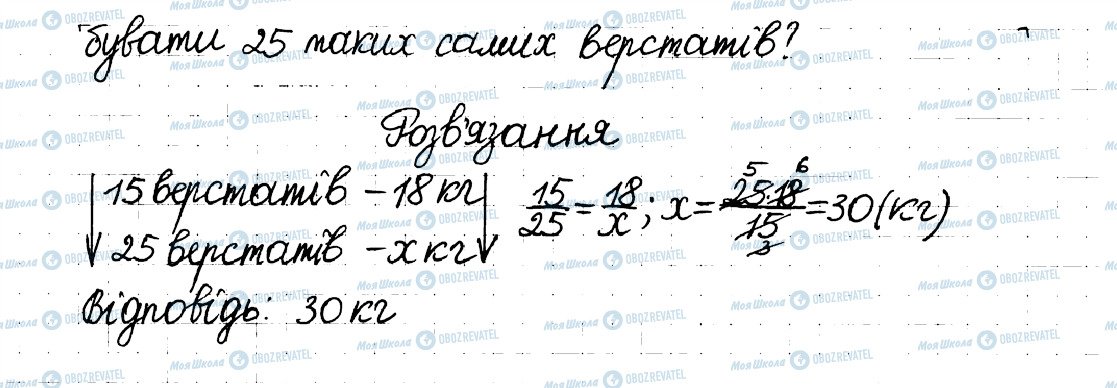 бувати 25 таких самих верстатів?
Розв'язання
15 верстатів – 18 кг
25 верстатів – x кг
15/25 = 18/x; x = 25·18/15 = 30 (кг)
Відповідь: 30 кг